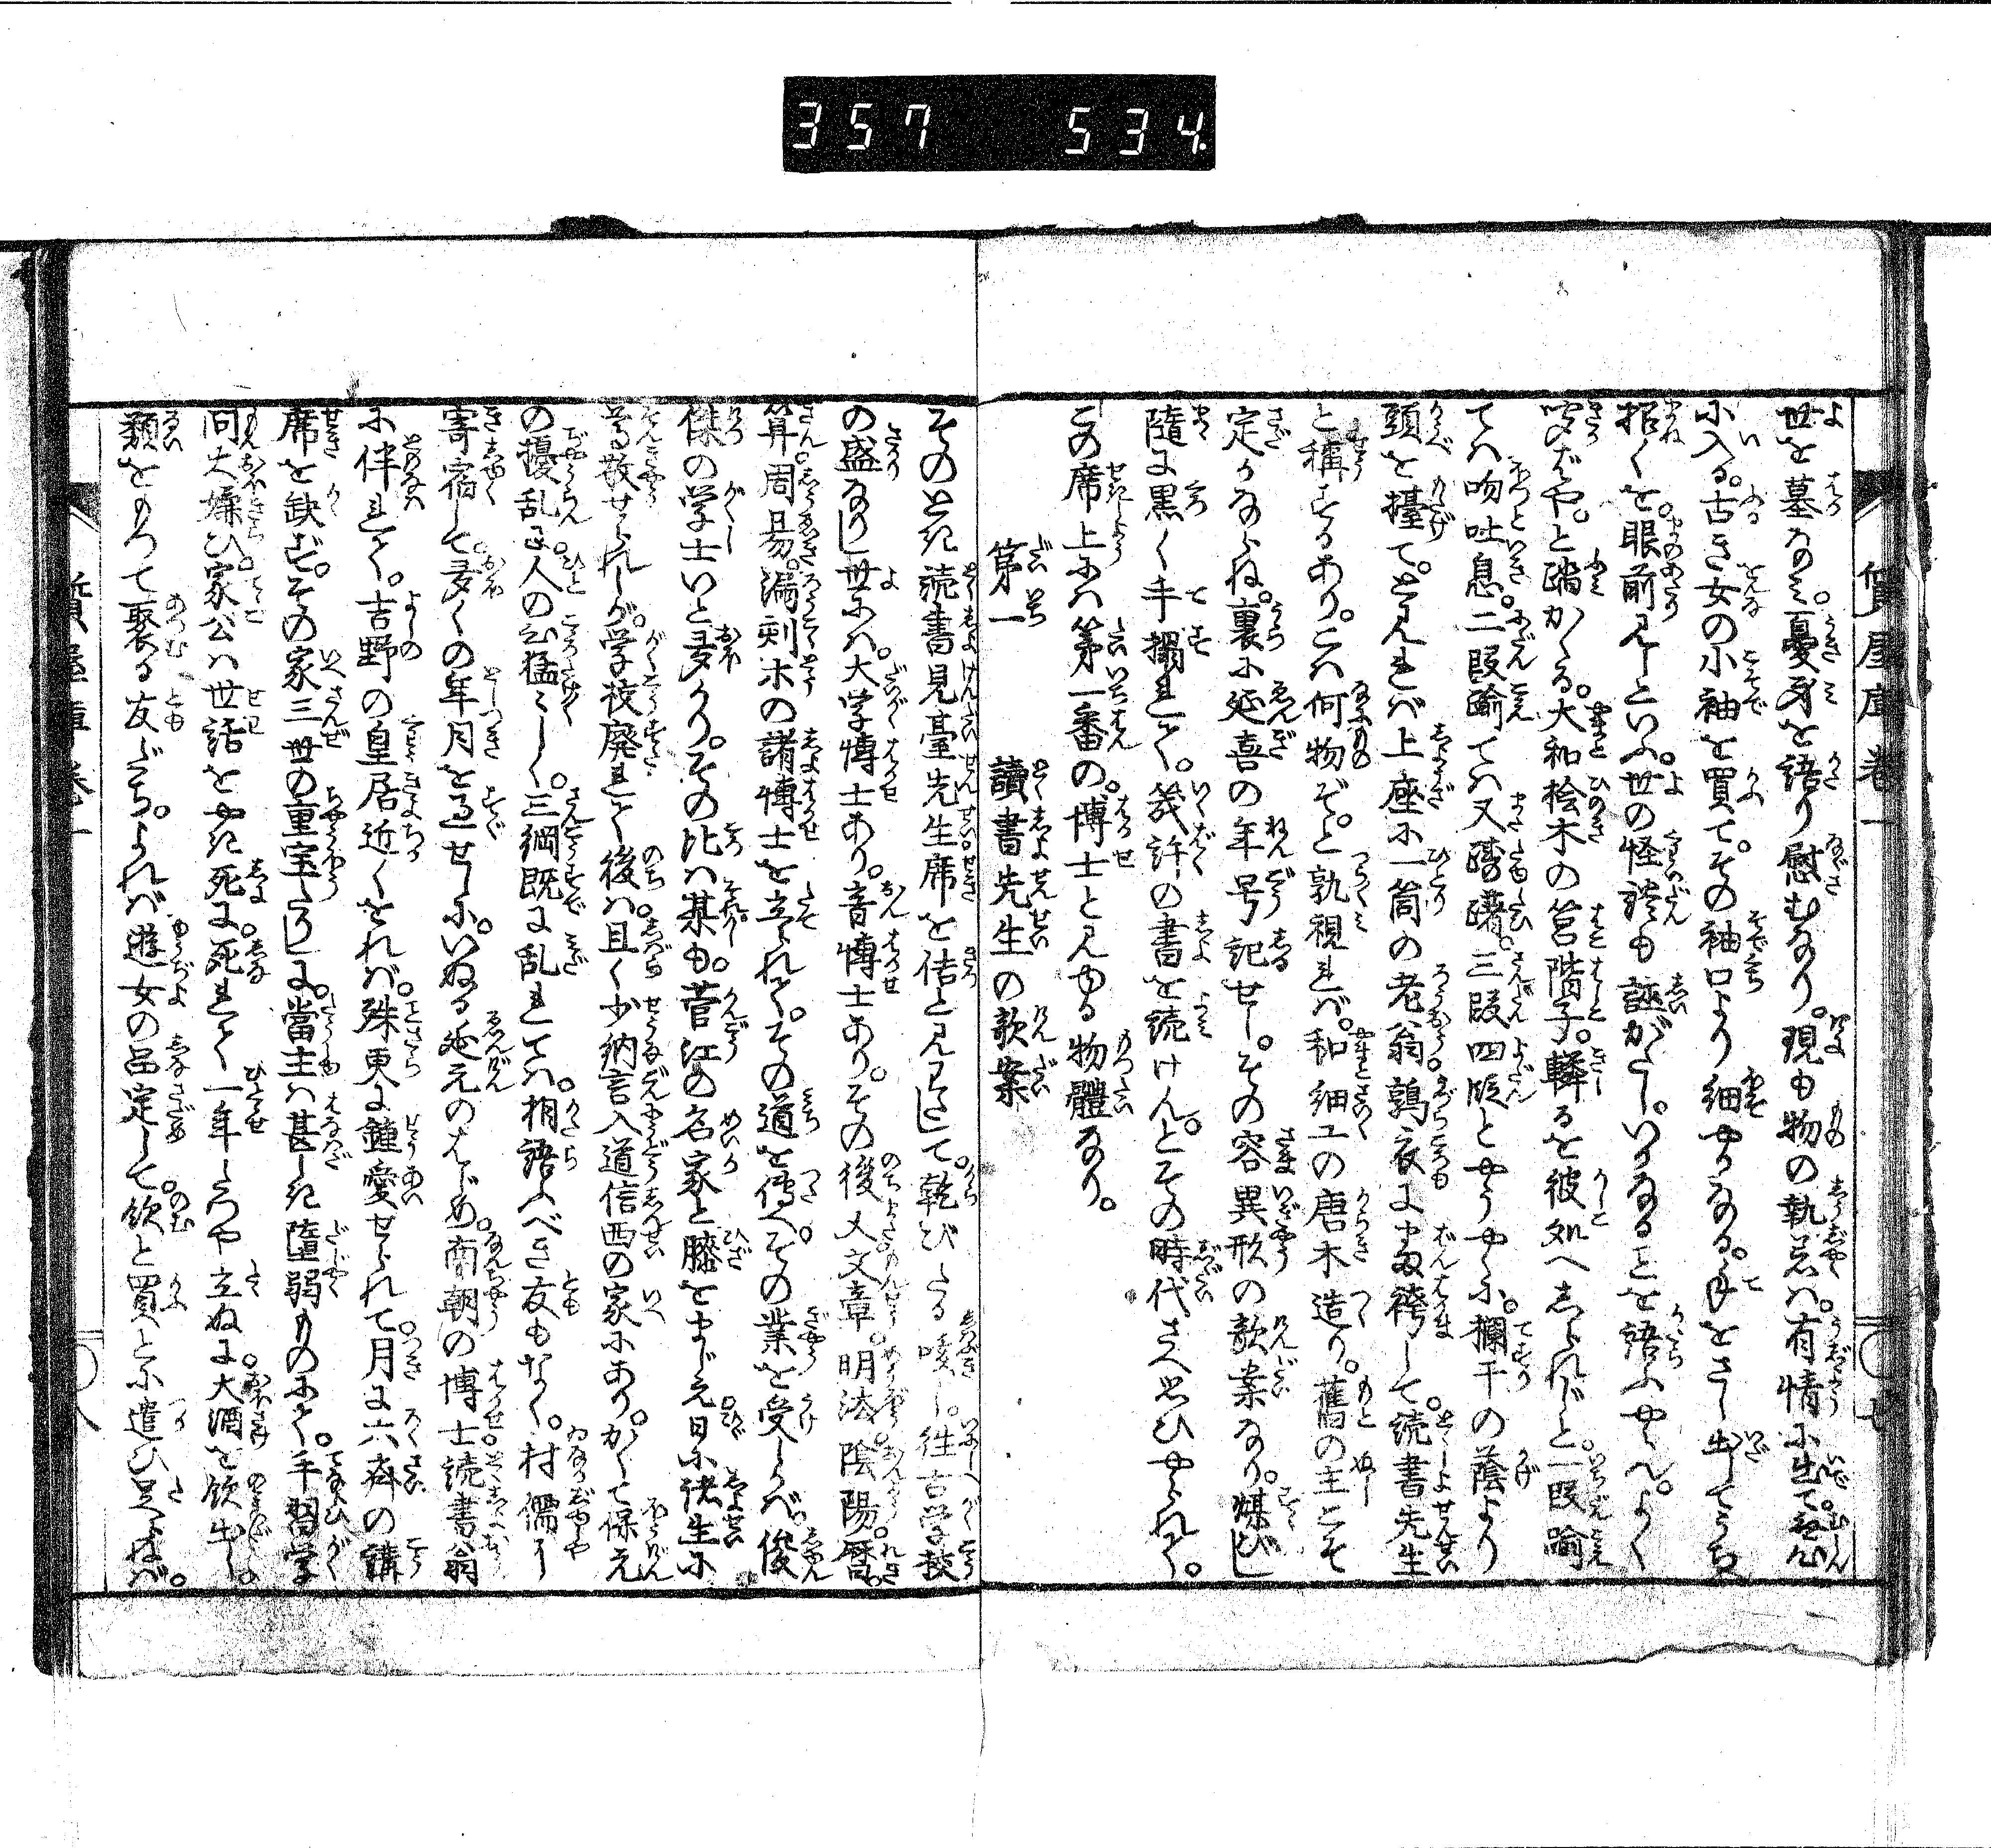 357 534
質屋庫 巻一
世を墓なみ。憂身を語り慰むなり。現も物の執着は。有情に出て無心
に入る。古き女の小袖を買て。その袖口より細やかなる。手をさし出してうち
招くを。眼前見しといふ。世の怪談も誣がたし。いかなることを語ふやらん。よく
聞ばや。と踏かくる。大和桧木の筥階子。轔るを彼処へしられじと。一段踰
ては吻吐息。二段踰ては又躊躇。三段四段とやうやくに。欄干の蔭より
頭を擡て。と見れば上座に一箇の老翁鶉衣にまち袴して。読書先生
と称するあり。こは何物ぞ。と孰視れば。和細工の唐木造り。舊の主こそ
定かならね。裏に延喜の年号記せし。その容異形の歌案なり。煤びし
隨に黒く手擱れて。幾許の書を読けん。とその時代さへ思ひやられて。
この席上には第一番の。博士と見ゆる物體なり。
第一 讀書先生の歌案
そのとき読書見臺先生席を佶と見わたして。乾びたる咳し。往古学校
の盛なりし世には。大学博士あり。音博士あり。その後又文章。明法。陰陽。暦。
算。周易。漏刻木の諸博士を立られて。その道を傳へ。その業を受しかば。俊
傑の学士いと多かり。その比は某も。菅江の名家と膝をまじえ。日に諸生に
尊敬せられしが。学校廃れて後は。且く少納言入道信西の家にあり。かくて保元
の擾乱に。人の心猛々しく。三綱既に乱れては。相語ふべき友もなく。村儒に
寄宿して。多くの年月を過せしに。いぬる延元のはじめ。南朝の博士読書翁
に伴れて。吉野の皇居近くをれば。殊更に鐘愛せられて。月に六齋の講
席を缺ず。その家三世の重宝たりしに。當主は甚しき隋弱ものにて。手習学
問大嫌ひ。家公は世話をやき死に。死れて一年たつや立ぬに。大酒を飲出し。
類をもつて聚る友ぶち。よれば遊女の品定して。飲と買とに遣ひ足らねば。